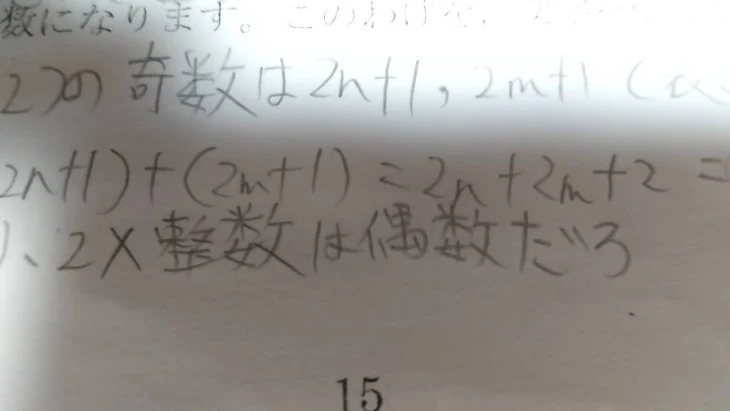 数になります。このわけを、
2つの奇数は2n+1, 2m+1 (
2n+1)+(2m+1)=2n+2m+2=
、2×整数は偶数だろ
15